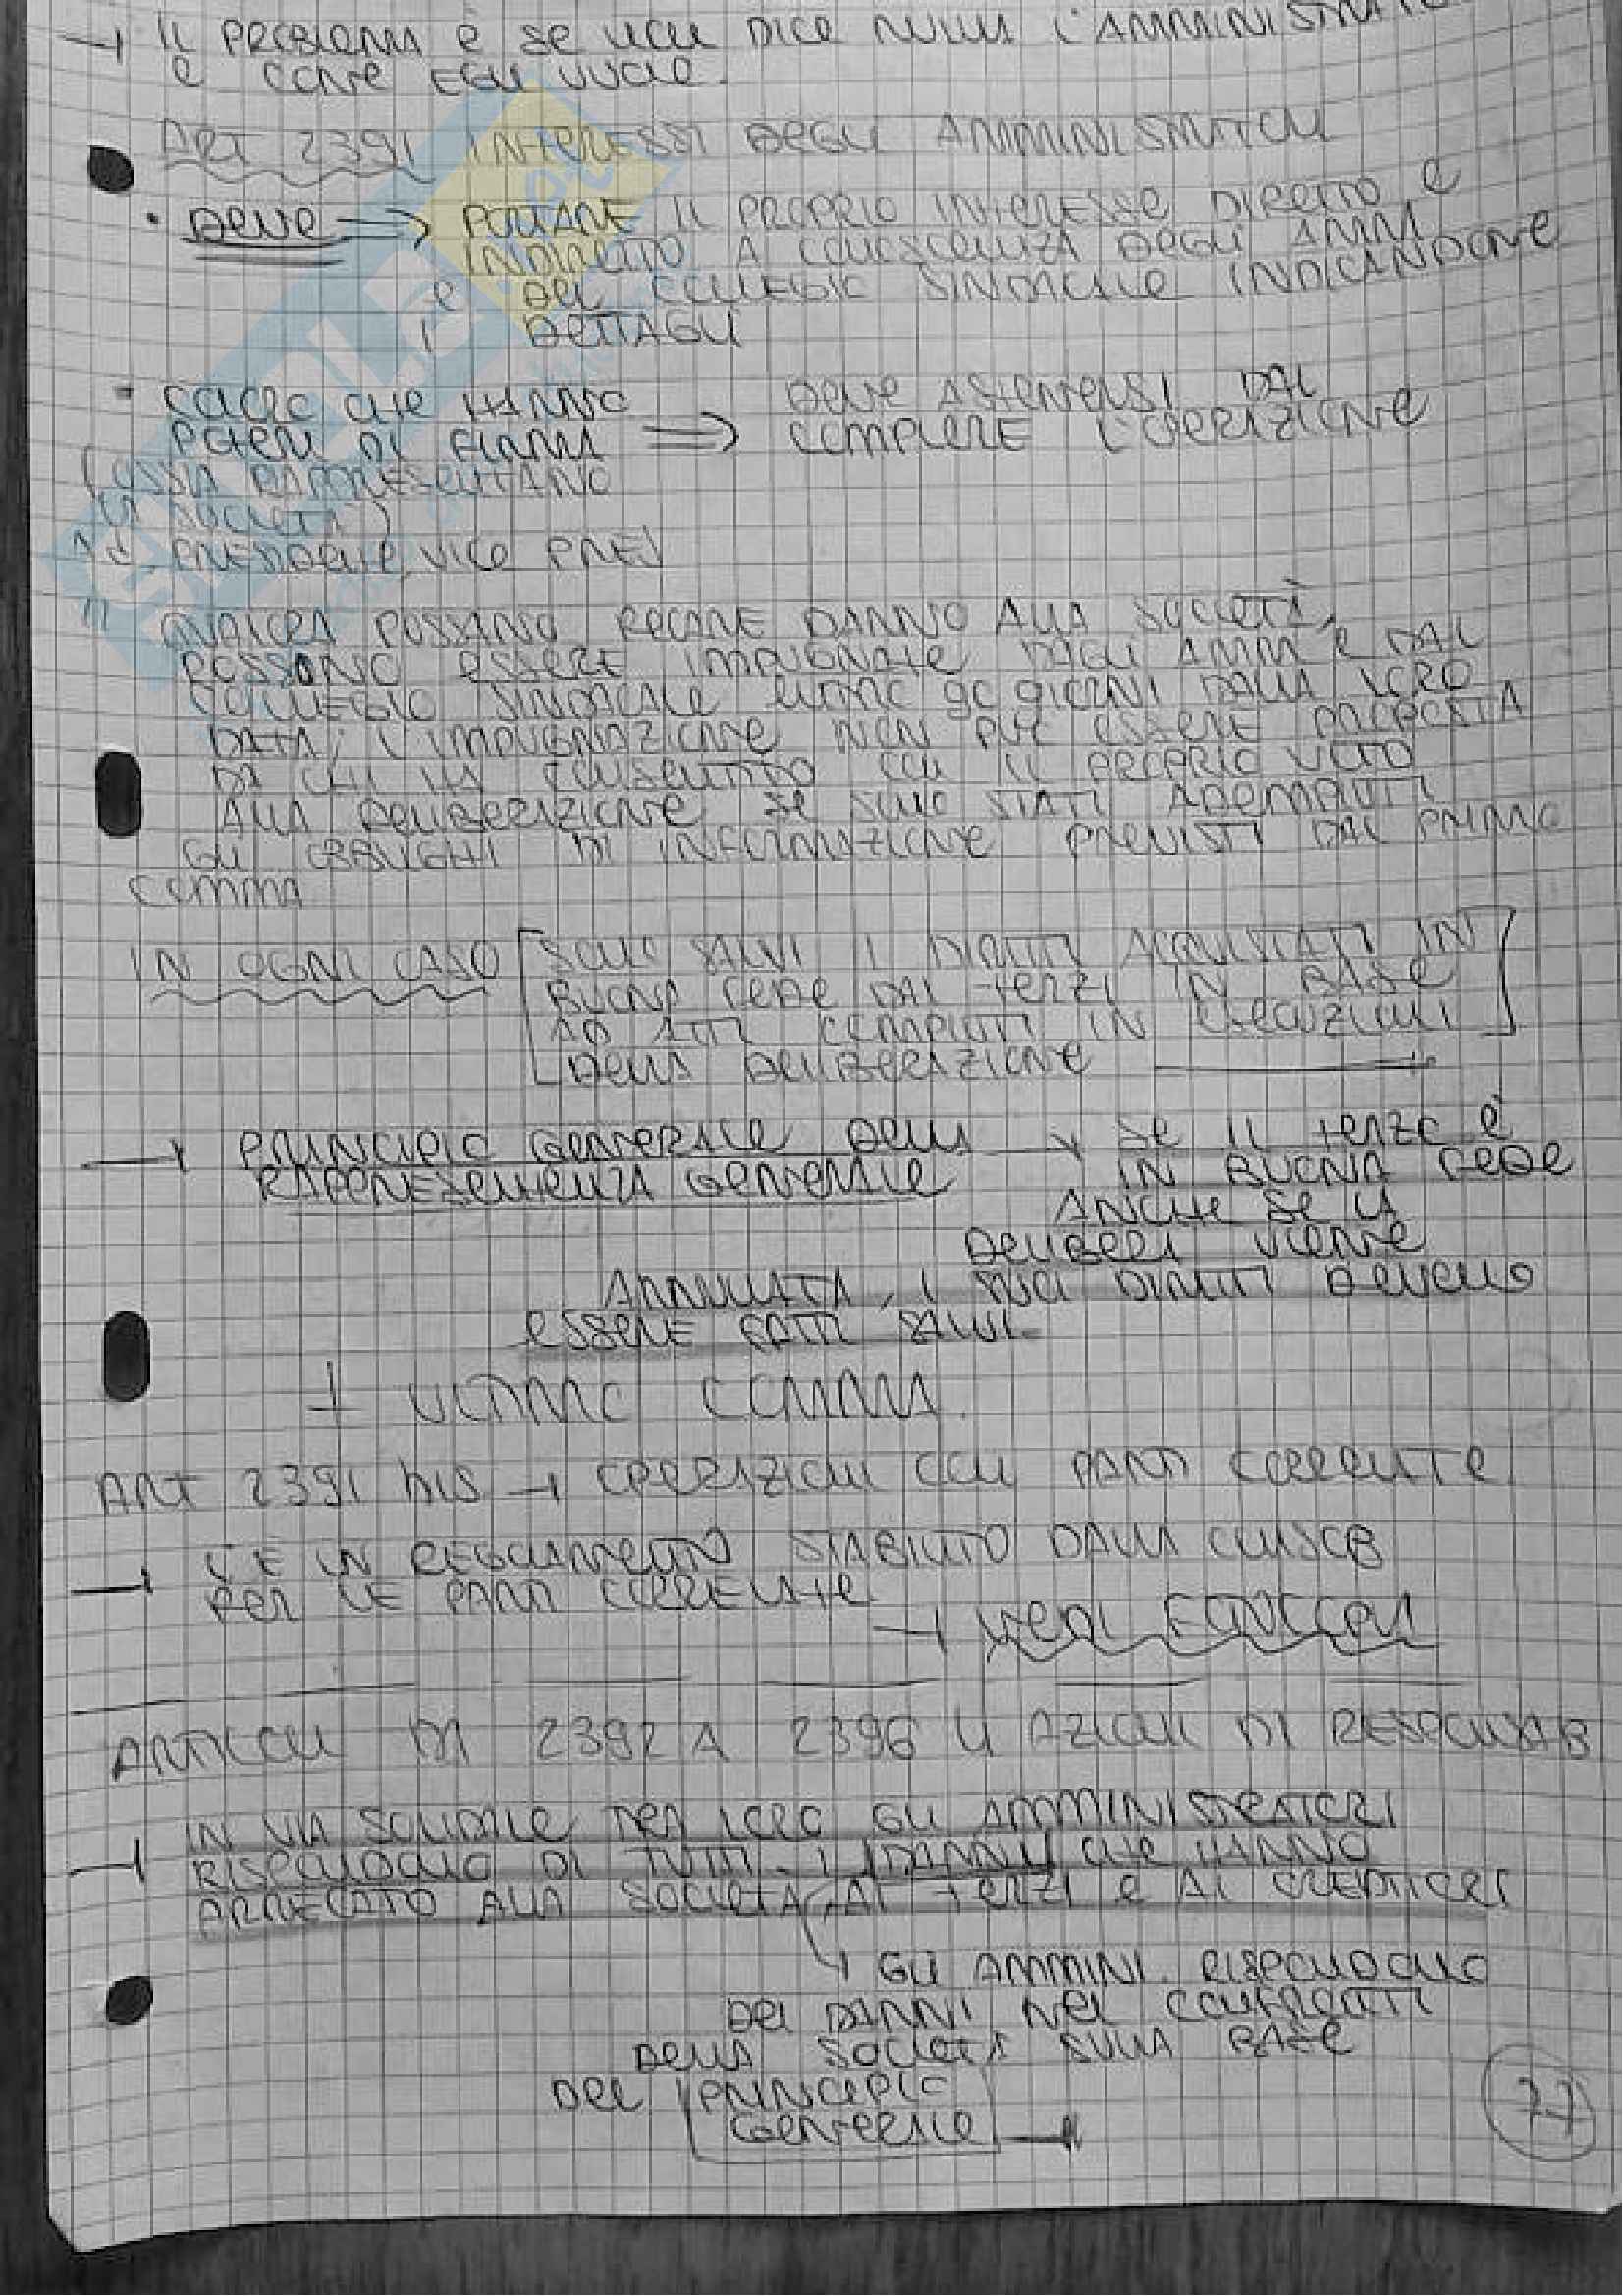 → IL PROBLEMA È SE NON DICE NULLA L'AMMINISTRATO
E COME EGLI VUOLE.
ART 2391 INTERESSI DEGLI AMMINISTRATORI
• DEVE ⇒ PORTARE IL PROPRIO INTERESSE DIRETTO E
INDIRETTO A CONOSCENZA DEGLI AMM
E DEL COLLEGIO SINDACALE INDICANDONE
I DETTAGLI
• COLORO CHE HANNO ⇒ DEVE ASTENERSI DAL
POTERI DI FIRMA COMPIERE L'OPERAZIONE
(OSSIA RAPPRESENTANO
LA SOCIETÀ)
PRESIDENTE, VICE PRES
" QUALORA POSSANO RECARE DANNO ALLA SOCIETÀ,
POSSONO ESSERE IMPUGNATE DAGLI AMM E DAL
COLLEGIO SINDACALE ENTRO 90 GIORNI DALLA LORO
DATA; L'IMPUGNAZIONE NON PUÒ ESSERE PROPOSTA
DA CHI HA CONSENTITO CON IL PROPRIO VOTO
ALLA DELIBERAZIONE SE SONO STATI ADEMPIUTI
GLI OBBLIGHI DI INFORMAZIONE PREVISTI DAL PRIMO
COMMA
IN OGNI CASO [SONO SALVI I DIRITTI ACQUISTATI IN
BUONA FEDE DAI TERZI IN BASE
AD ATTI COMPIUTI IN ESECUZIONI]
DELLA DELIBERAZIONE →
→ PRINCIPIO GENERALE DELLA → SE IL TERZO È
RAPPRESENTENZA GENERALE IN BUONA FEDE
ANCHE SE LA
DELIBERA VIENE
ANNULLATA, I SUOI DIRITTI DEVONO
ESSERE FATTI SALVI.
+ ULTIMO COMMA.
ART 2391 BIS → OPERAZIONI CON PARTI CORRELATE
→ C'È UN REGOLAMENTO STABILITO DALLA CONSOB
PER LE PARTI CORRELATE
→ VEDI FOTOCOPIA
ARTICOLI DA 2392 A 2396 LE AZIONI DI RESPONSAB
→ IN VIA SOLIDALE TRA LORO GLI AMMINISTRATORI
RISPONDONO DI TUTTI I DANNI CHE HANNO
ARRECATO ALLA SOCIETÀ, AI TERZI E AI CREDITORI
↳ GLI AMMINI. RISPONDONO
DEI DANNI NEI CONFRONTI
DELLA SOCIETÀ SULLA BASE
DEL PRINCIPIO
GENERALE →
77